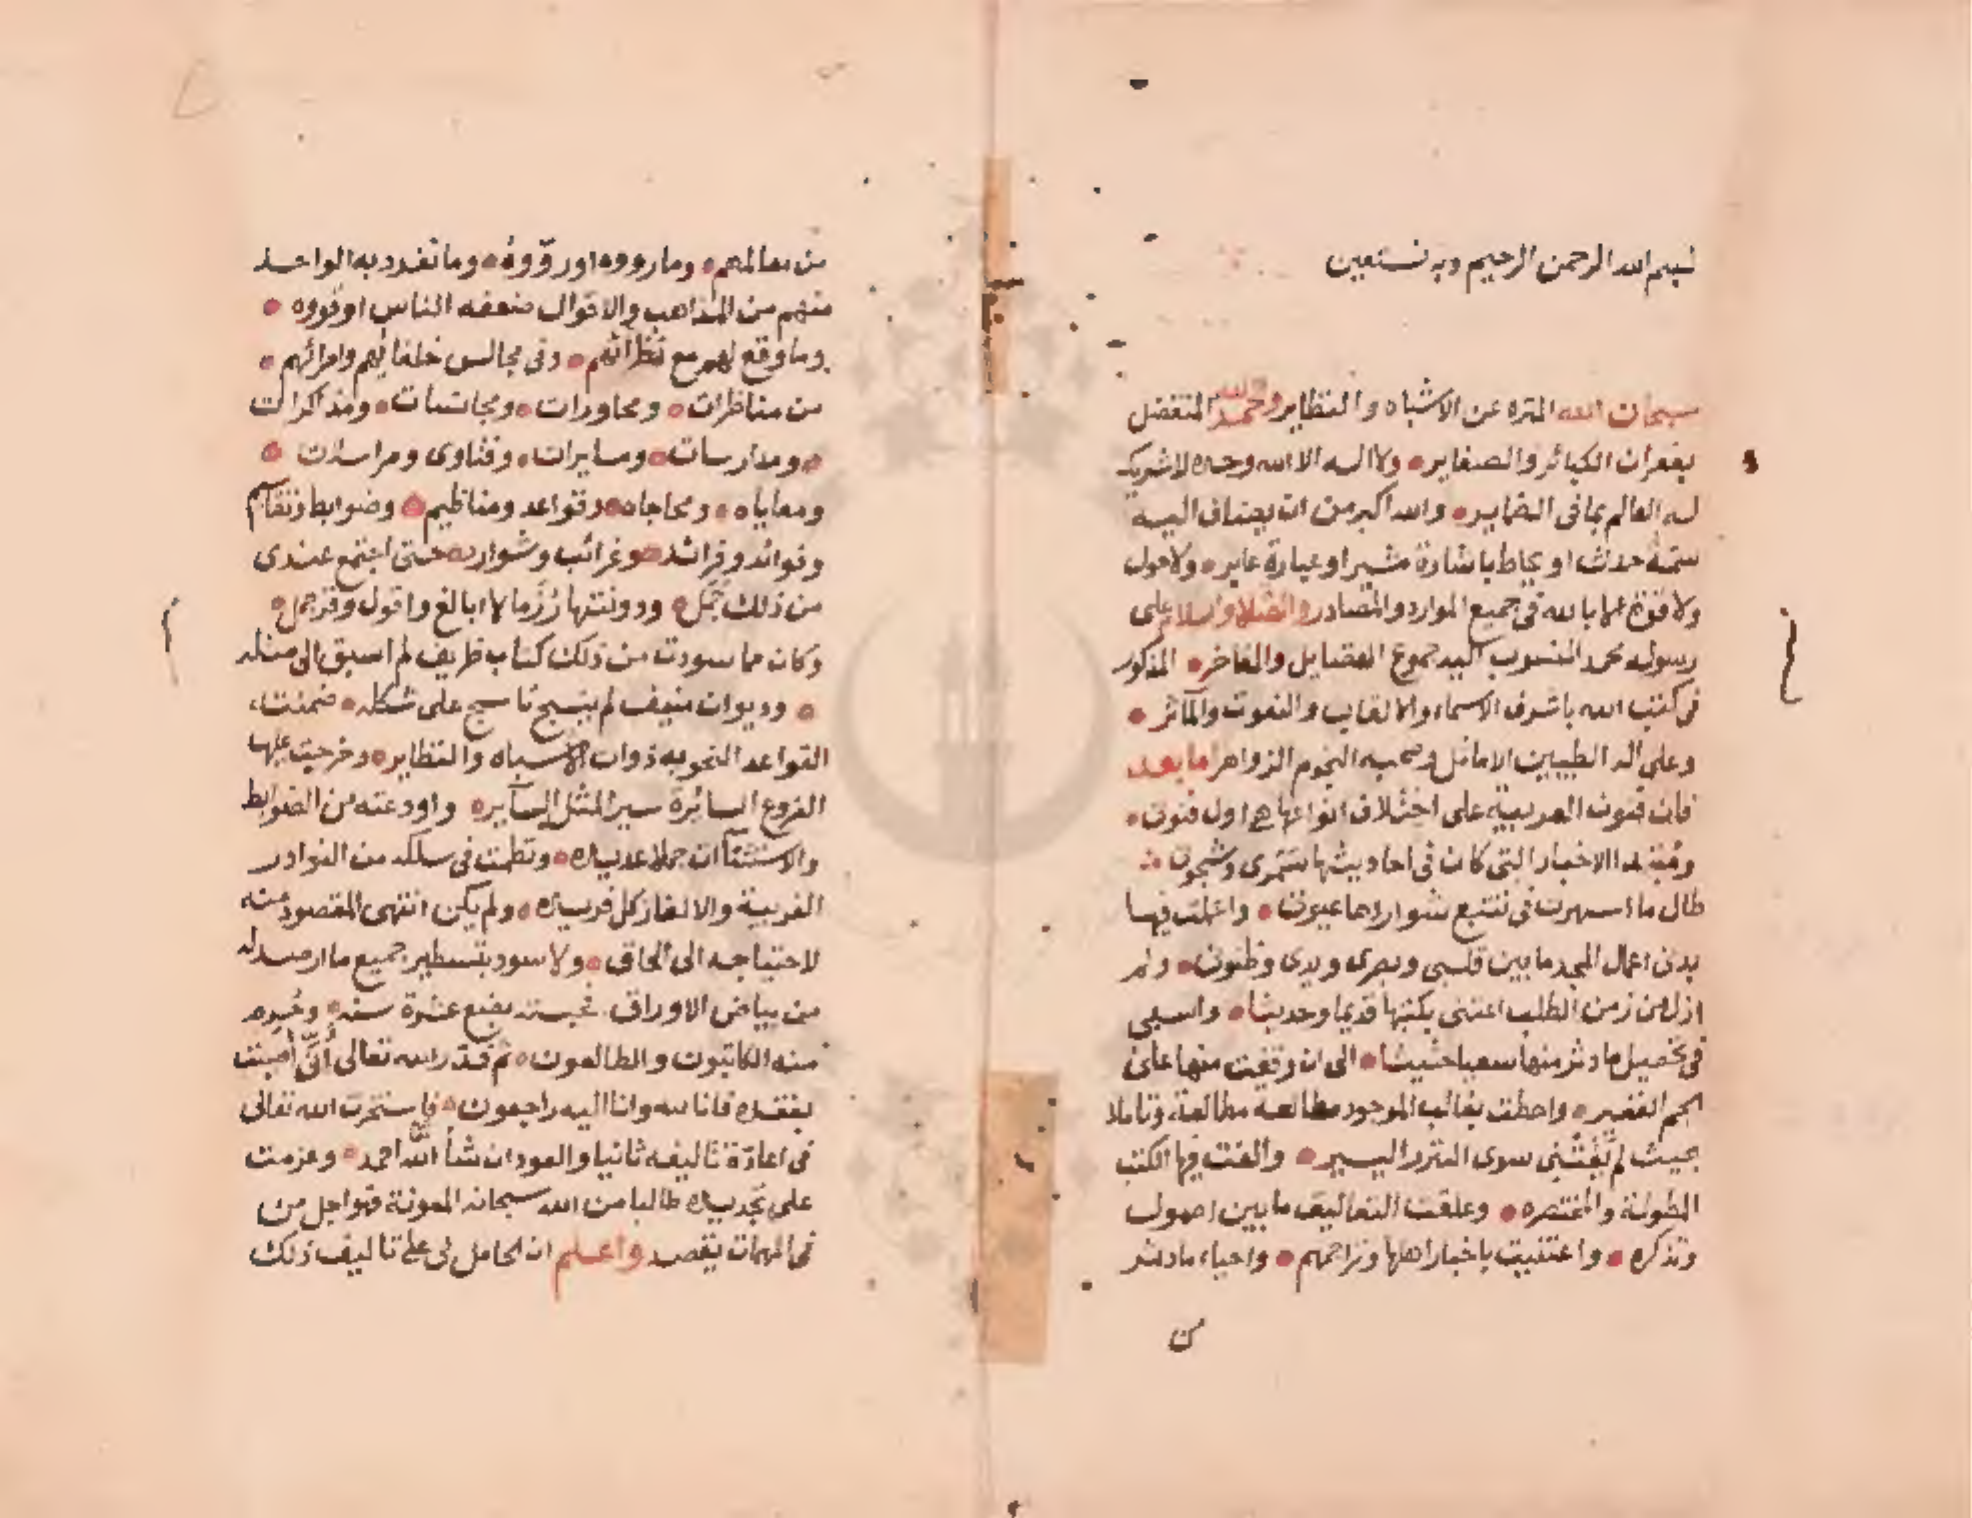 بسم الله الرحمن الرحيم وبه نستعين
سبحان الله المنزه عن الاشباه والنظاير والحمد لله المتفضل
بغفران الكبائر والصغاير ولا اله الا الله وحده لا شريك
له العالم بما في الضماير والله اكبر من ان يضاف اليه
سمة حدث او يحاط باشارة مشير او عبارة عابر ولا حول
ولا قوة الا بالله في جميع الموارد والمصادر والصلاة والسلام على
رسوله محمد المنسوب اليه جموع الفضايل والمفاخر المذكور
في كتب الله باشرف الاسماء والالقاب والنعوت والمآثر
وعلى اله الطيبين الاماثل وصحبه النجوم الزواهر اما بعد
فان فنون العربية على اختلاف انواعها هي اول فنوني
ومبتدا الاخبار التي كان في احاديثها سمري وشجوني
طال ما اسهرت في تتبع شواردها عيوني واعملت فيها
بدني اعمال المجد ما بين قلبي وبصري ويدي وظنوني ولم
ازل من زمن الطلب اعتني بكتبها قديما وحديثا واسعى
في تحصيل ما دثر منها سعيا حثيثا الى ان وقفت منها على
الجم الغفير واحطت بغالب الموجود مطالعة مطالعة وتاملا
بحيث لم يفتني سوى النزر اليسير والفت فيها الكتب
المطولة والمختصره وعلقت التعاليق ما بين اصول
وتذكره واعتنيت باخبار اهلها وتراجمهم واحياء ما دثر
من
من معالمهم وما رووه او رووه وما تفرد به الواحد
منهم من المذاهب والاقوال ضعفه الناس او قووه
وما وقع لهم مع نظرائهم وفي مجالس خلفائهم وامرائهم
من مناظرات ومحاورات ومجالسات ومذاكرات
ومدارسات ومسايرات وفتاوى ومراسلات
ومعاياه ومحاجاه وقواعد ومناظيم وضوابط وتقاسيم
وفوائد وفرائد وغرائب وشوارد حتى اجتمع عندي
من ذلك جمل ودونتها رزما لا ابالغ واقول وقر جمل
وكان مما سودت من ذلك كتاب ظريف لم اسبق الى مثله
وديوان منيف لم ينسج ناسج على شكله ضمنته
القواعد النحويه ذوات الاشباه والنظاير وخرجت عليها
الفروع السائرة سير المثل السآير واودعته من الضوابط
والاستثنآآت جملا عديده ونظمت في سلكه من النوادر
الغريبة والالغاز كل فريده ولم يكن انتهى المقصود منه
لاحتياجه الى الحاق ولا سود بتسطير جميع ما ارصد له
من بياض الاوراق فحبسته بضع عشرة سنه وحرم
منه الكاتبون والمطالعون ثم قدر الله تعالى أني أصبت
بفقده فانا لله وانا اليه راجعون فاستخرت الله تعالى
في اعادة تاليفه ثانيا والعود ان شأ الله احمد وعزمت
على تجديده طالبا من الله سبحانه المعونة فهو اجل من
في المهمات يقصد واعلم ان الحامل لي على تاليف ذلك